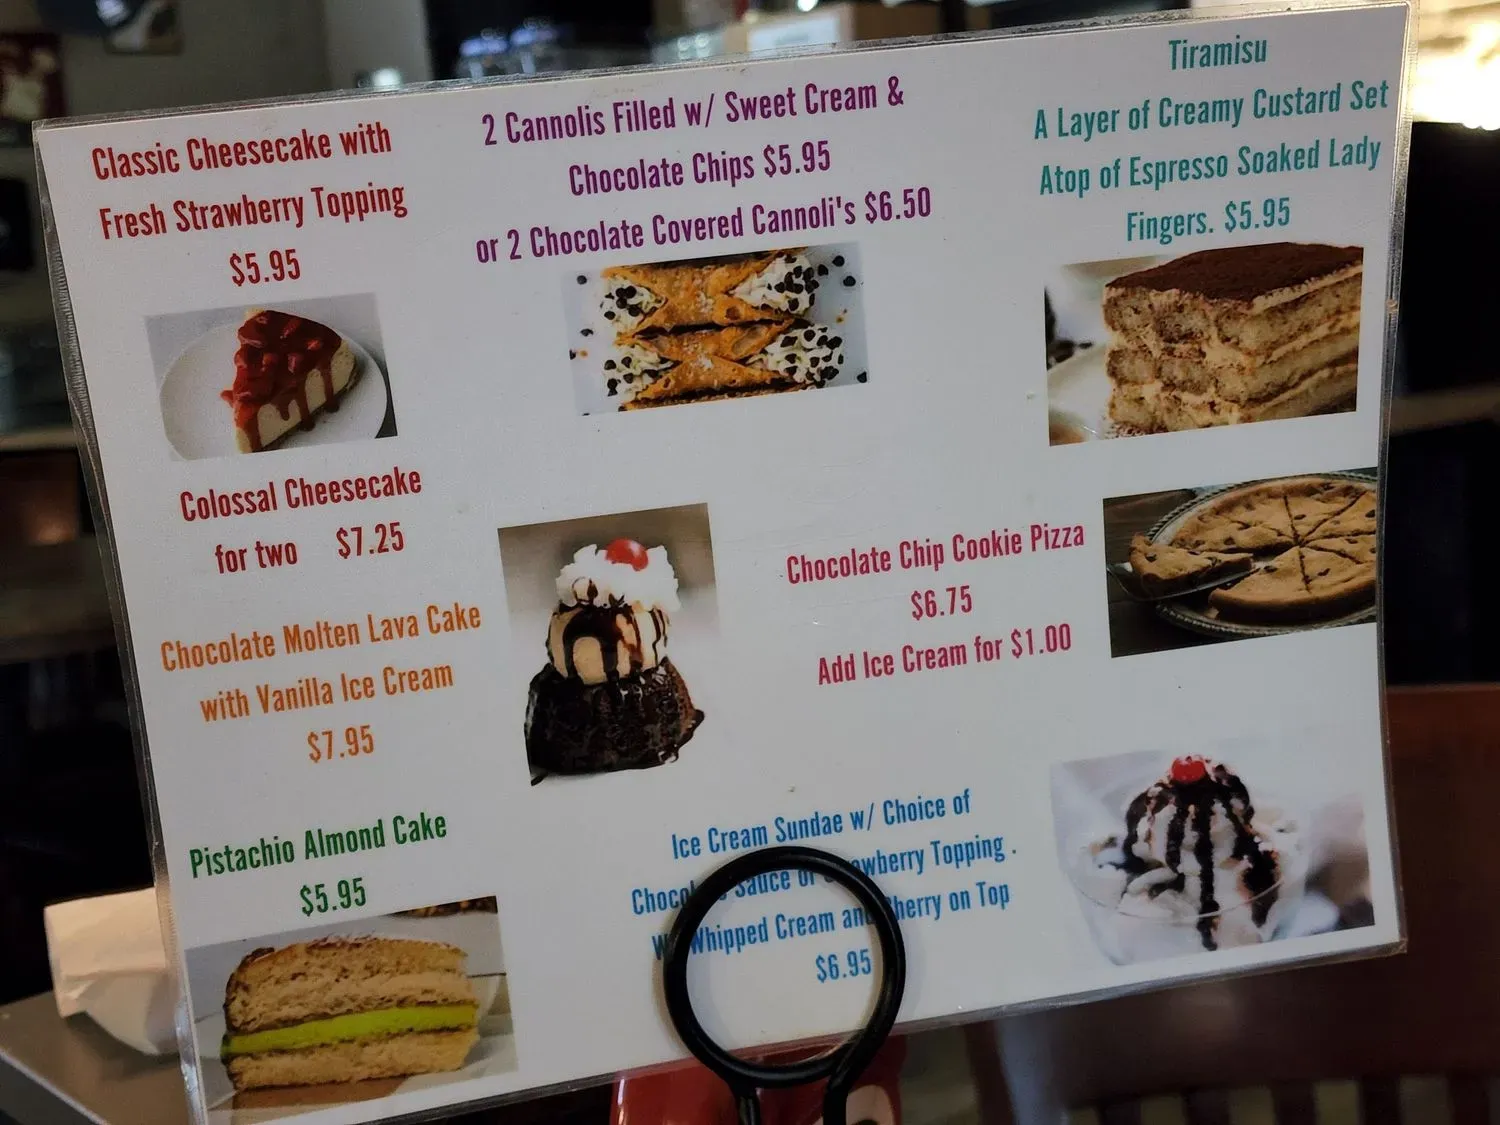 Classic Cheesecake with
Fresh Strawberry Topping
$5.95
2 Cannolis Filled w/ Sweet Cream &
Chocolate Chips $5.95
or 2 Chocolate Covered Cannoli's $6.50
Tiramisu
A Layer of Creamy Custard Set
Atop of Espresso Soaked Lady
Fingers. $5.95
Colossal Cheesecake
for two $7.25
Chocolate Chip Cookie Pizza
$6.75
Add Ice Cream for $1.00
Chocolate Molten Lava Cake
with Vanilla Ice Cream
$7.95
Pistachio Almond Cake
$5.95
Ice Cream Sundae w/ Choice of
Chocolate Sauce or Strawberry Topping .
Whipped Cream and Cherry on Top
$6.95